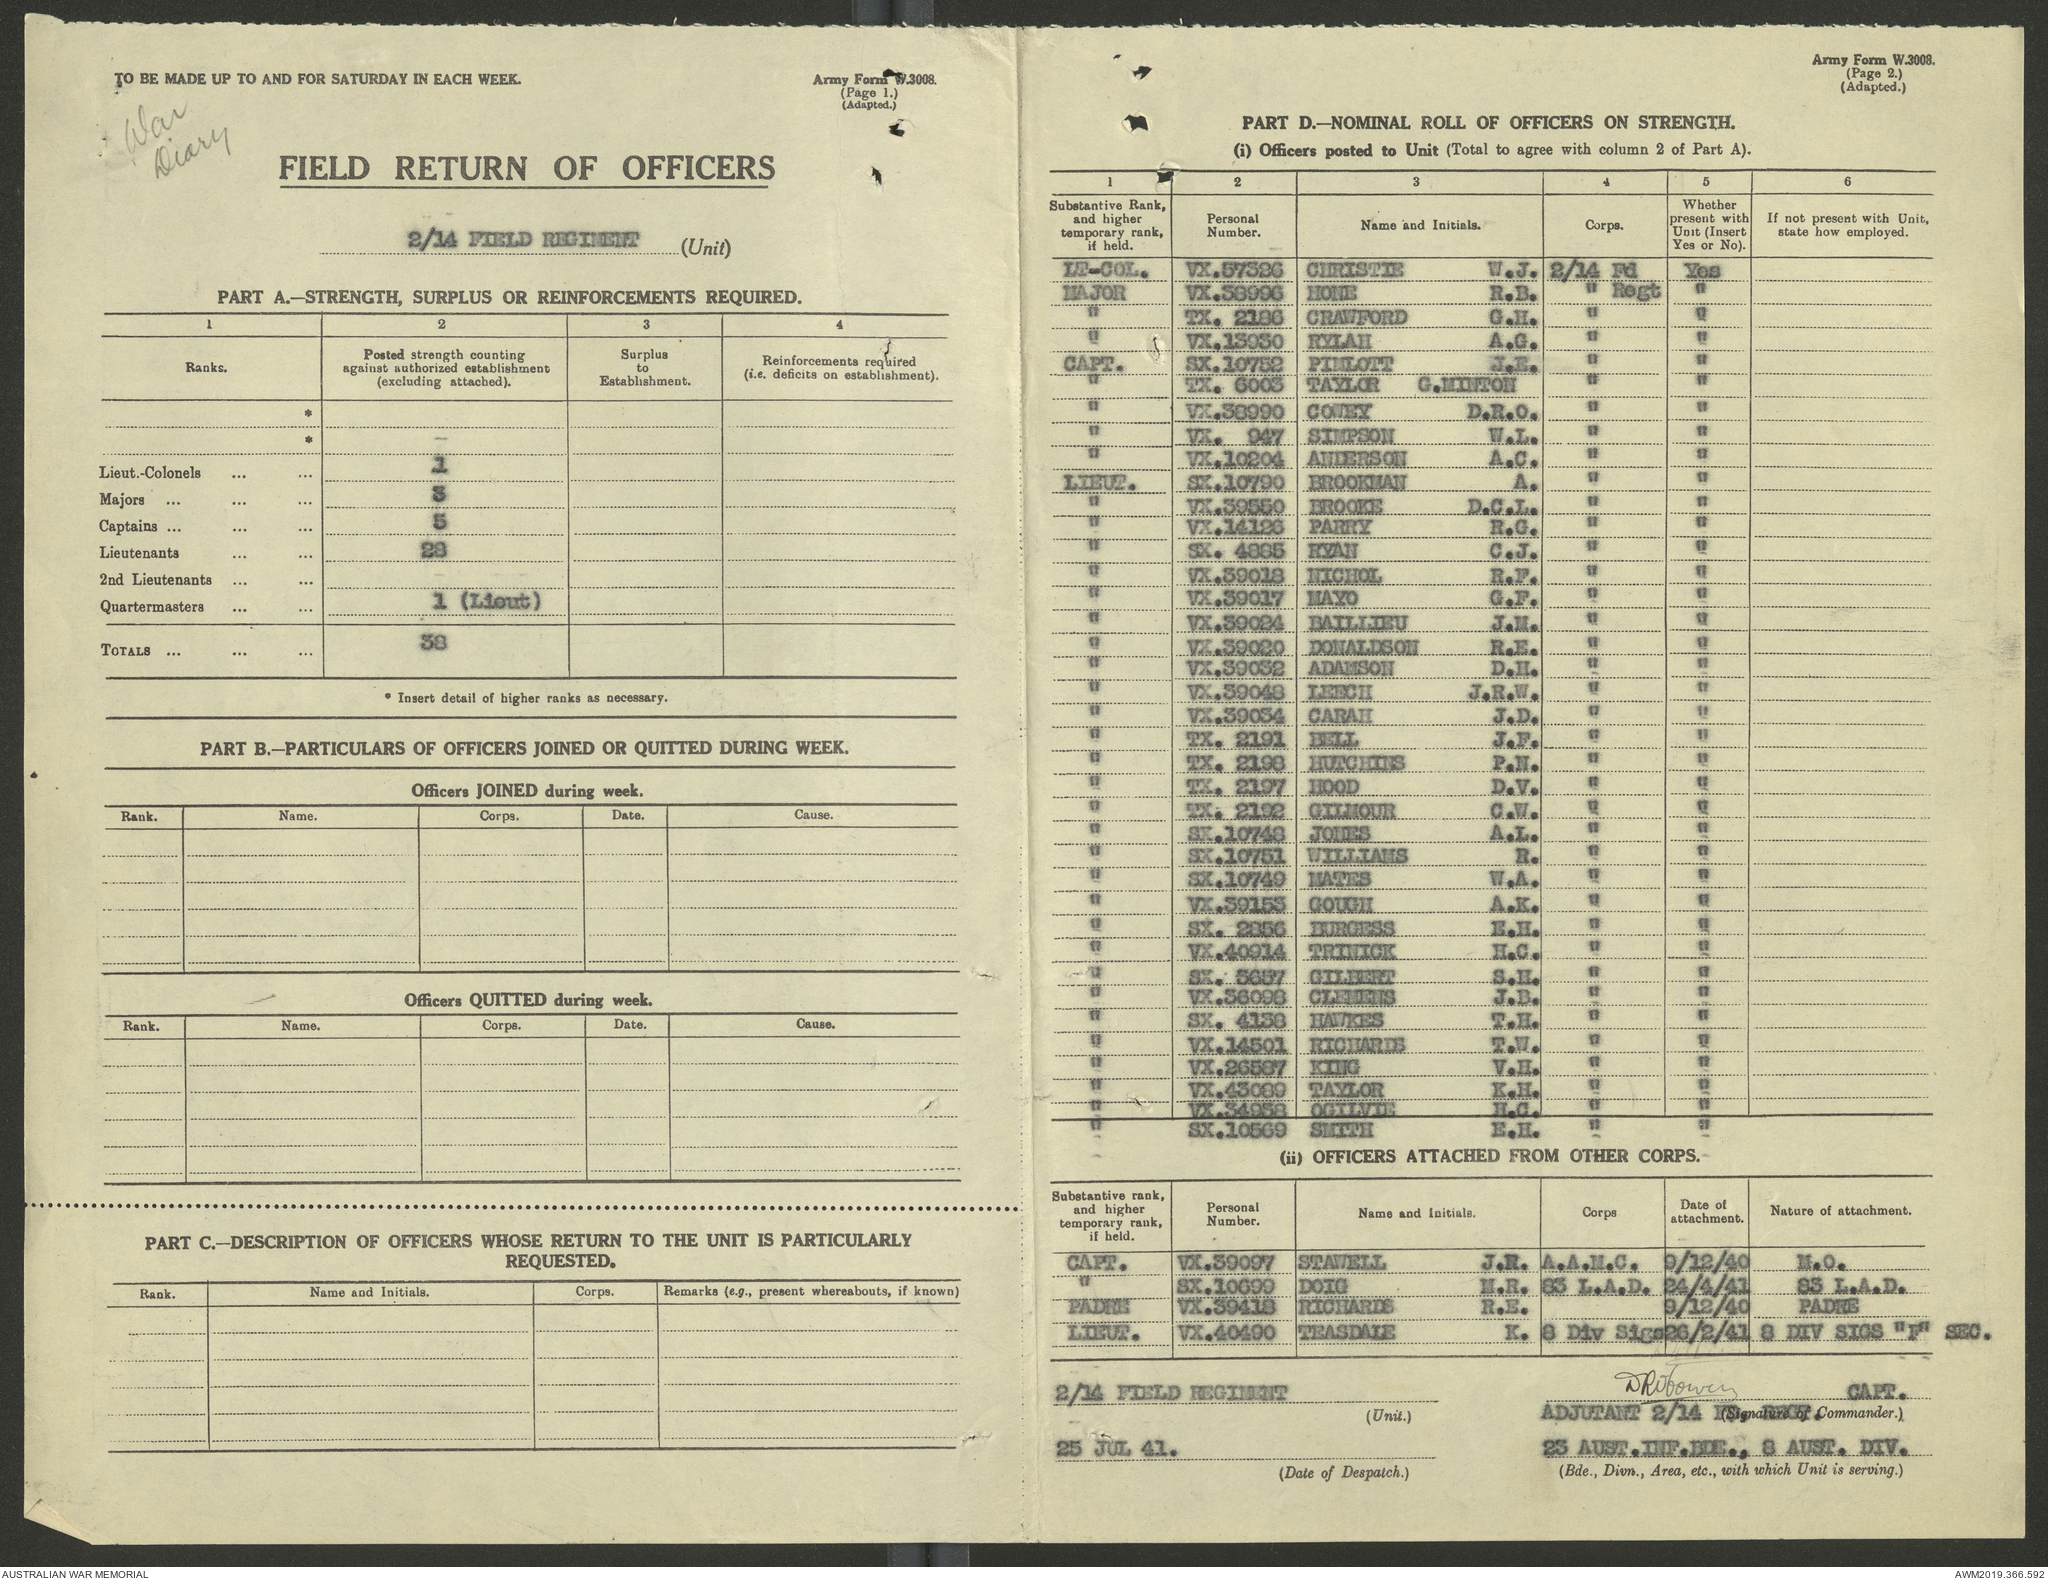 TO BE MADE UP TO AND FOR SATURDAY IN EACH WEEK.
Army Form W.3008.
(Page 1.)
(Adapted.)
War
Diary
FIELD RETURN OF OFFICERS
2/14 FIELD REGIMENT (Unit)
PART A.—STRENGTH, SURPLUS OR REINFORCEMENTS REQUIRED.
1 2 3 4
Ranks. Posted strength counting against authorized establishment (excluding attached). Surplus to Establishment. Reinforcements required (i.e. deficits on establishment).
*
* –
Lieut.-Colonels ... ... 1
Majors ... ... ... 3
Captains ... ... ... 5
Lieutenants ... ... 28
2nd Lieutenants ... ... –
Quartermasters ... ... 1 (Lieut)
TOTALS ... ... ... 38
* Insert detail of higher ranks as necessary.
PART B.—PARTICULARS OF OFFICERS JOINED OR QUITTED DURING WEEK.
Officers JOINED during week.
Rank. Name. Corps. Date. Cause.
Officers QUITTED during week.
Rank. Name. Corps. Date. Cause.
PART C.—DESCRIPTION OF OFFICERS WHOSE RETURN TO THE UNIT IS PARTICULARLY
REQUESTED.
Rank. Name and Initials. Corps. Remarks (e.g., present whereabouts, if known)
Army Form W.3008.
(Page 2.)
(Adapted.)
PART D.—NOMINAL ROLL OF OFFICERS ON STRENGTH.
(i) Officers posted to Unit (Total to agree with column 2 of Part A).
1 2 3 4 5 6
Substantive Rank, and higher temporary rank, if held. Personal Number. Name and Initials. Corps. Whether present with Unit (Insert Yes or No). If not present with Unit, state how employed.
LT-COL. VX.57326 CHRISTIE W.J. 2/14 Fd Yes
MAJOR VX.38996 HONE R.B. " Regt "
" TX. 2186 CRAWFORD G.H. " "
" VX.13930 RYLAH A.G. " "
CAPT. SX.10752 PIMLOTT J.E. " "
" TX. 6003 TAYLOR G.MINTON " "
" VX.38990 COVEY D.R.O. " "
" VX. 947 SIMPSON W.L. " "
" VX.10204 ANDERSON A.C. " "
LIEUT. SX.10790 BROOKMAN A. " "
" VX.39550 BROOKE D.C.L. " "
" VX.14126 PARRY R.G. " "
" SX. 4885 RYAN C.J. " "
" VX.39018 NICHOL R.F. " "
" VX.39017 MAYO G.F. " "
" VX.39024 BAILLIEU J.M. " "
" VX.39020 DONALDSON R.E. " "
" VX.39032 ADAMSON D.H. " "
" VX.39048 LEECH J.R.W. " "
" VX.39034 CARAH J.D. " "
" TX. 2191 BELL J.F. " "
" TX. 2198 HUTCHINS P.N. " "
" TX. 2197 HOOD D.V. " "
" TX. 2192 GILMOUR C.W. " "
" SX.10748 JONES A.L. " "
" SX.10751 WILLIAMS R. " "
" SX.10749 MATES W.A. " "
" VX.39153 GOUGH A.K. " "
" SX. 2856 BURGESS E.H. " "
" VX.40914 TRINICK H.C. " "
" SX. 3657 GILBERT S.H. " "
" VX.36098 CLEMENS J.B. " "
" SX. 4138 HAWKES T.H. " "
" VX.14501 RICHARDS T.W. " "
" VX.26587 KING V.H. " "
" VX.43089 TAYLOR K.H. " "
" VX.34958 OGILVIE H.C. " "
" SX.10569 SMITH E.H. " "
(ii) OFFICERS ATTACHED FROM OTHER CORPS.
Substantive rank, and higher temporary rank, if held. Personal Number. Name and Initials. Corps Date of attachment. Nature of attachment.
CAPT. VX.39097 STAWELL J.R. A.A.M.C. 9/12/40 M.O.
" SX.10699 DOIG M.R. 83 L.A.D. 24/4/41 83 L.A.D.
PADRE VX.39418 RICHARDS R.E. 9/12/40 PADRE
LIEUT. VX.40490 TEASDALE K. 8 Div Sigs 26/2/41 8 DIV SIGS "F" SEC.
2/14 FIELD REGIMENT CAPT.
(Unit.) ADJUTANT 2/14 FD. REGT. (Signature of Commander.)
25 JUL 41. 23 AUST.INF.BDE., 8 AUST. DIV.
(Date of Despatch.) (Bde., Divn., Area, etc., with which Unit is serving.)
AUSTRALIAN WAR MEMORIAL AWM2019.366.592